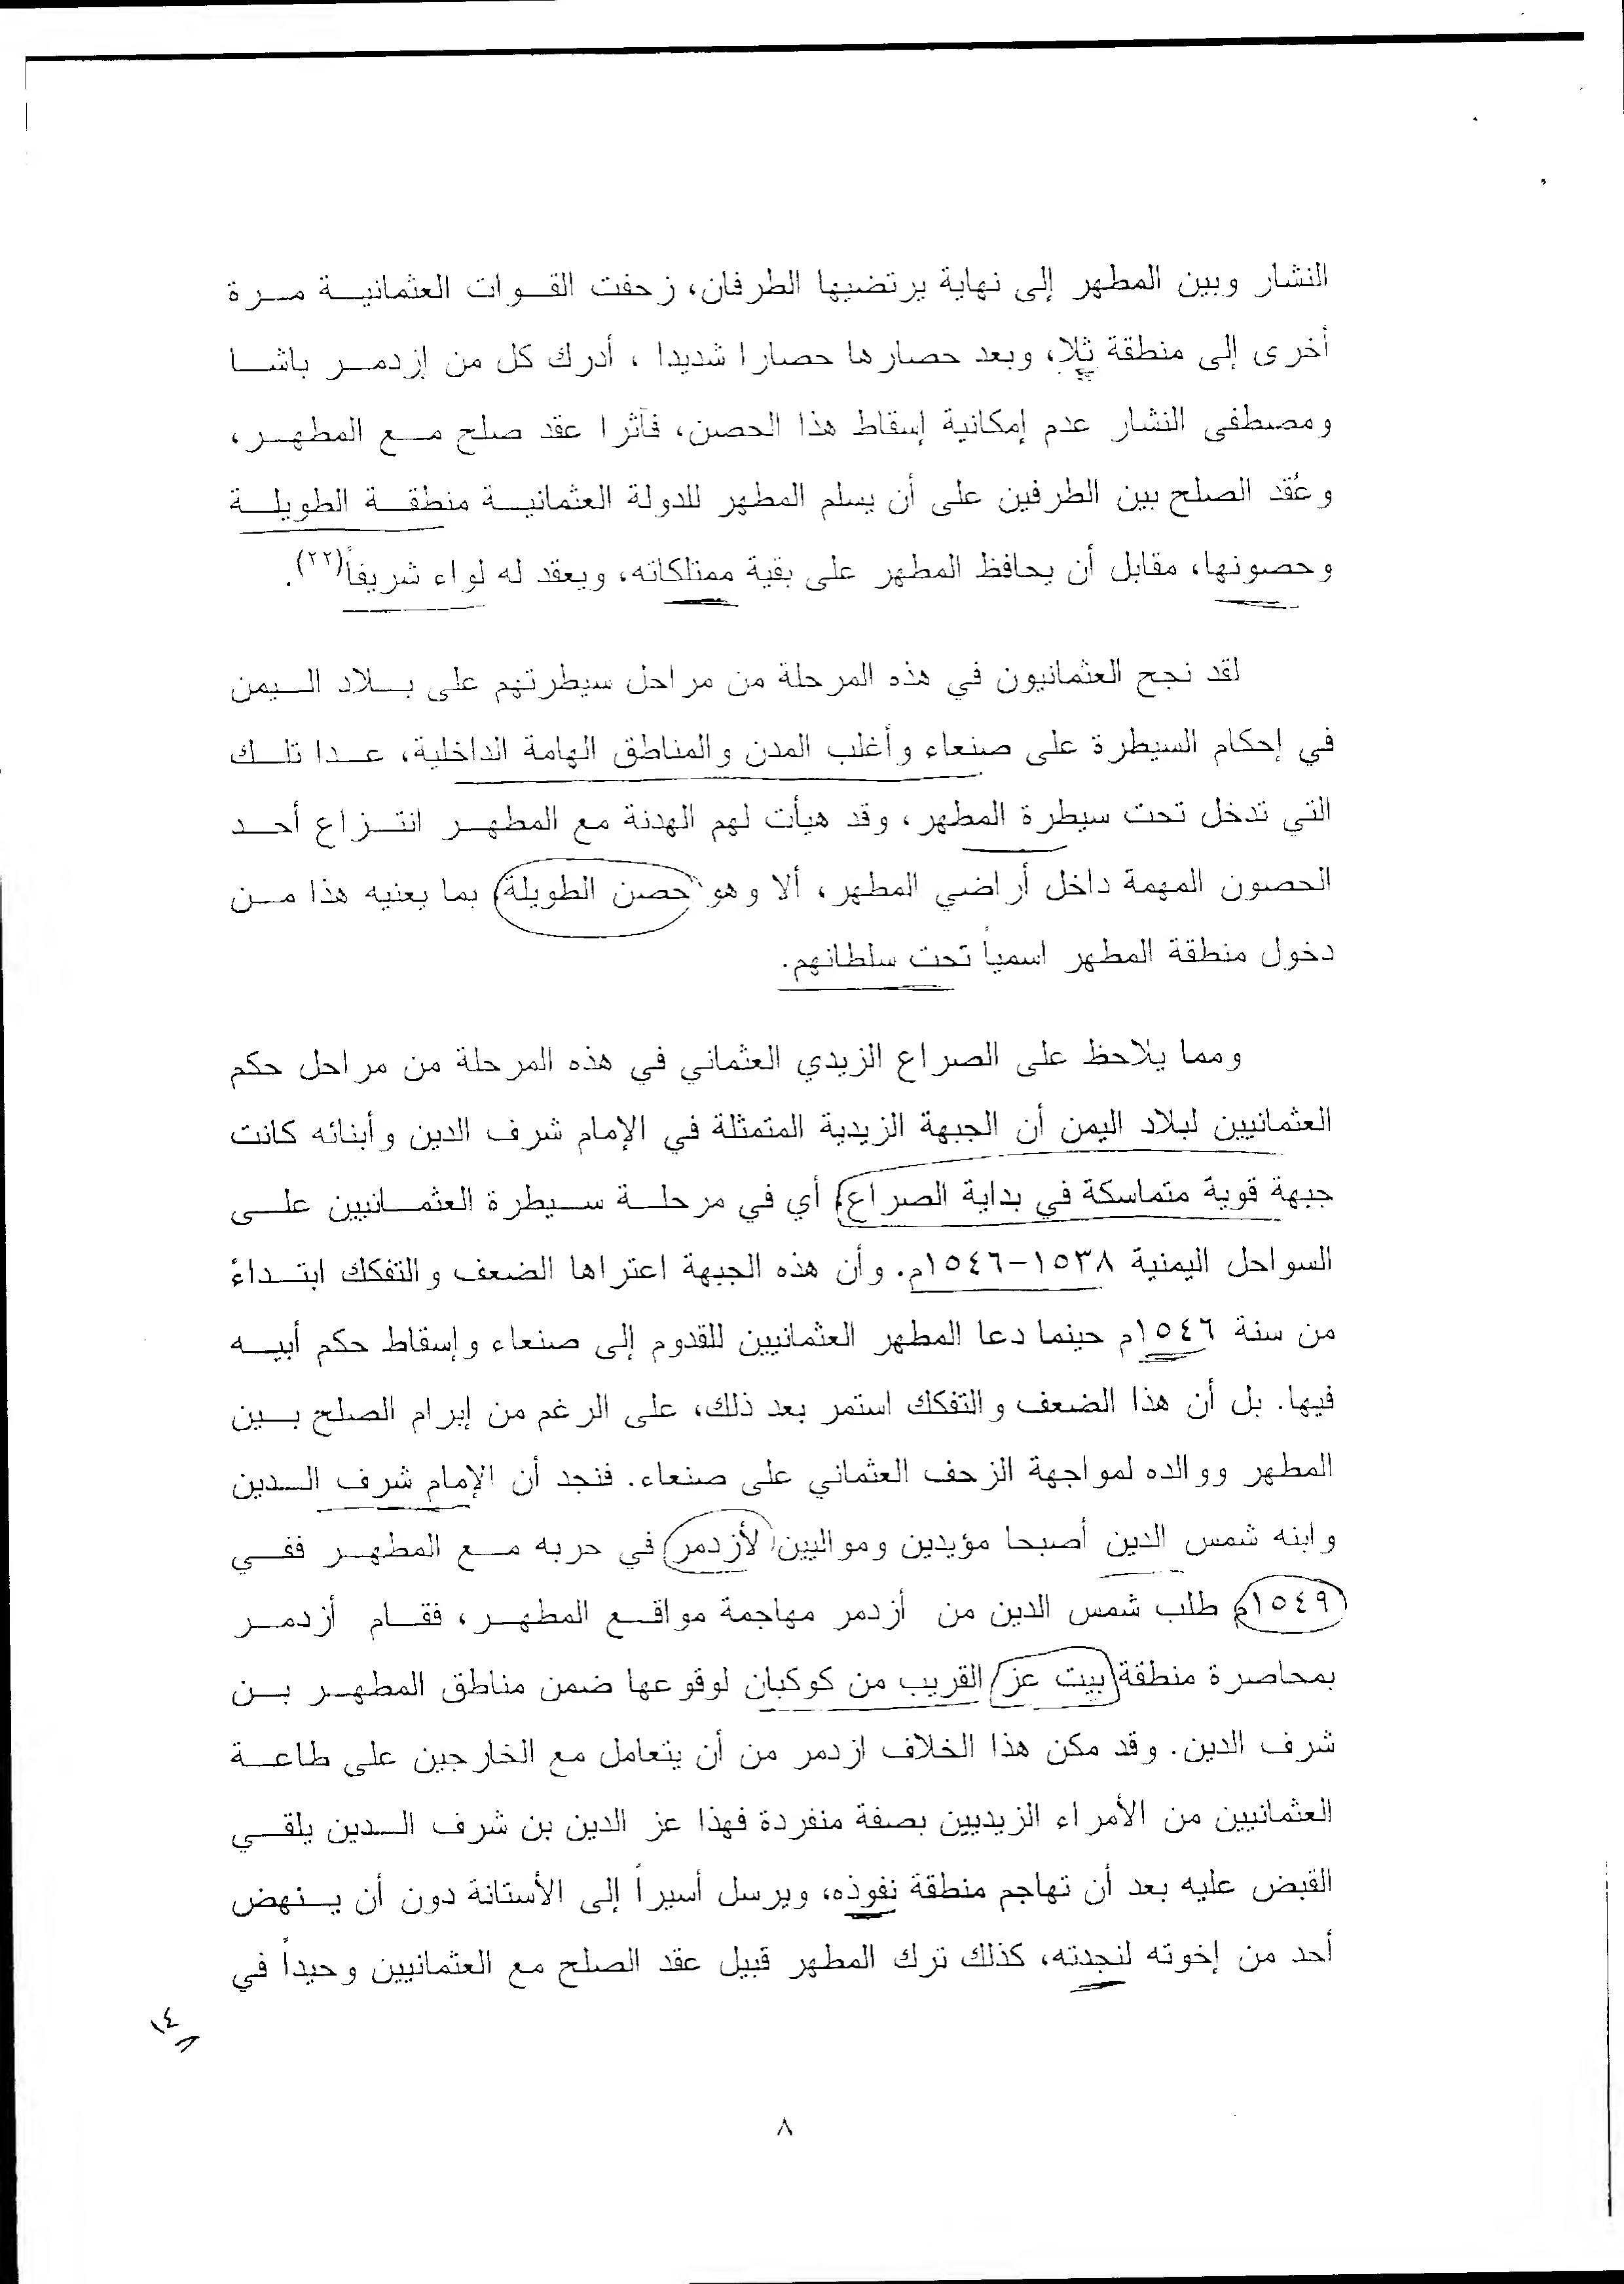 النشار وبين المطهر إلى نهاية يرتضيها الطرفان، زحفت القوات العثمانية مرة
أخرى إلى منطقة ثلا، وبعد حصارها حصارا شديدا ، أدرك كل من إزدمر باشا
ومصطفى النشار عدم إمكانية إسقاط هذا الحصن، فآثرا عقد صلح مع المطهر،
وعُقد الصلح بين الطرفين على أن يسلم المطهر للدولة العثمانية منطقة الطويلة
وحصونها، مقابل أن يحافظ المطهر على بقية ممتلكاته، ويعقد له لواء شريفاً(٢٢).
لقد نجح العثمانيون في هذه المرحلة من مراحل سيطرتهم على بلاد اليمن
في إحكام السيطرة على صنعاء وأغلب المدن والمناطق الهامة الداخلية، عدا تلك
التي تدخل تحت سيطرة المطهر، وقد هيأت لهم الهدنة مع المطهر انتزاع أحد
الحصون المهمة داخل أراضي المطهر، ألا وهو حصن الطويلة، بما يعنيه هذا من
دخول منطقة المطهر اسمياً تحت سلطانهم.
ومما يلاحظ على الصراع الزيدي العثماني في هذه المرحلة من مراحل حكم
العثمانيين لبلاد اليمن أن الجبهة الزيدية المتمثلة في الإمام شرف الدين وأبنائه كانت
جبهة قوية متماسكة في بداية الصراع، أي في مرحلة سيطرة العثمانيين على
السواحل اليمنية ١٥٣٨-١٥٤٦م. وأن هذه الجبهة اعتراها الضعف والتفكك ابتداءً
من سنة ١٥٤٦م حينما دعا المطهر العثمانيين للقدوم إلى صنعاء وإسقاط حكم أبيه
فيها. بل أن هذا الضعف والتفكك استمر بعد ذلك، على الرغم من إبرام الصلح بين
المطهر ووالده لمواجهة الزحف العثماني على صنعاء. فنجد أن الإمام شرف الدين
وابنه شمس الدين أصبحا مؤيدين ومواليين لأزدمر في حربه مع المطهر ففي
١٥٤٩م طلب شمس الدين من أزدمر مهاجمة مواقع المطهر، فقام أزدمر
بمحاصرة منطقة بيت عز القريب من كوكبان لوقوعها ضمن مناطق المطهر بن
شرف الدين. وقد مكن هذا الخلاف ازدمر من أن يتعامل مع الخارجين على طاعة
العثمانيين من الأمراء الزيديين بصفة منفردة فهذا عز الدين بن شرف الدين يلقي
القبض عليه بعد أن تهاجم منطقة نفوذه، ويرسل أسيراً إلى الأستانة دون أن ينهض
أحد من إخوته لنجدته، كذلك ترك المطهر قبيل عقد الصلح مع العثمانيين وحيداً في
١٤
٨